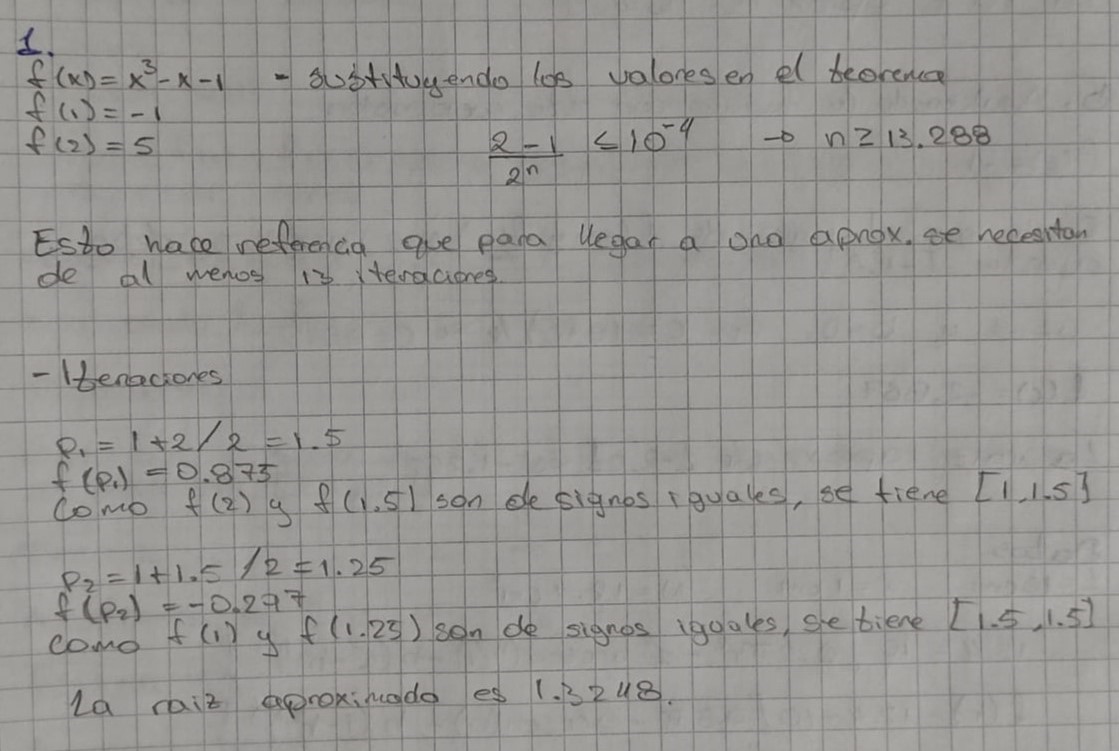 1.
f(x) = x³ - x - 1 - sustituyendo los valores en el teorema
f(1) = -1
f(2) = 5
2 - 1 / 2ⁿ ≤ 10⁻⁴ → n ≥ 13.288
Esto hace referencia que para llegar a una aprox. se necesitan
de al menos 13 iteraciones
- Iteraciones
P₁ = 1+2/2 = 1.5
f(p₁) = 0.875
Como f(2) y f(1.5) son de signos iguales, se tiene [1,1.5]
P₂ = 1+1.5/2 = 1.25
f(p₂) = -0.297
como f(1) y f(1.25) son de signos iguales, se tiene [1.5,1.5]
La raiz aproximado es 1.3248.